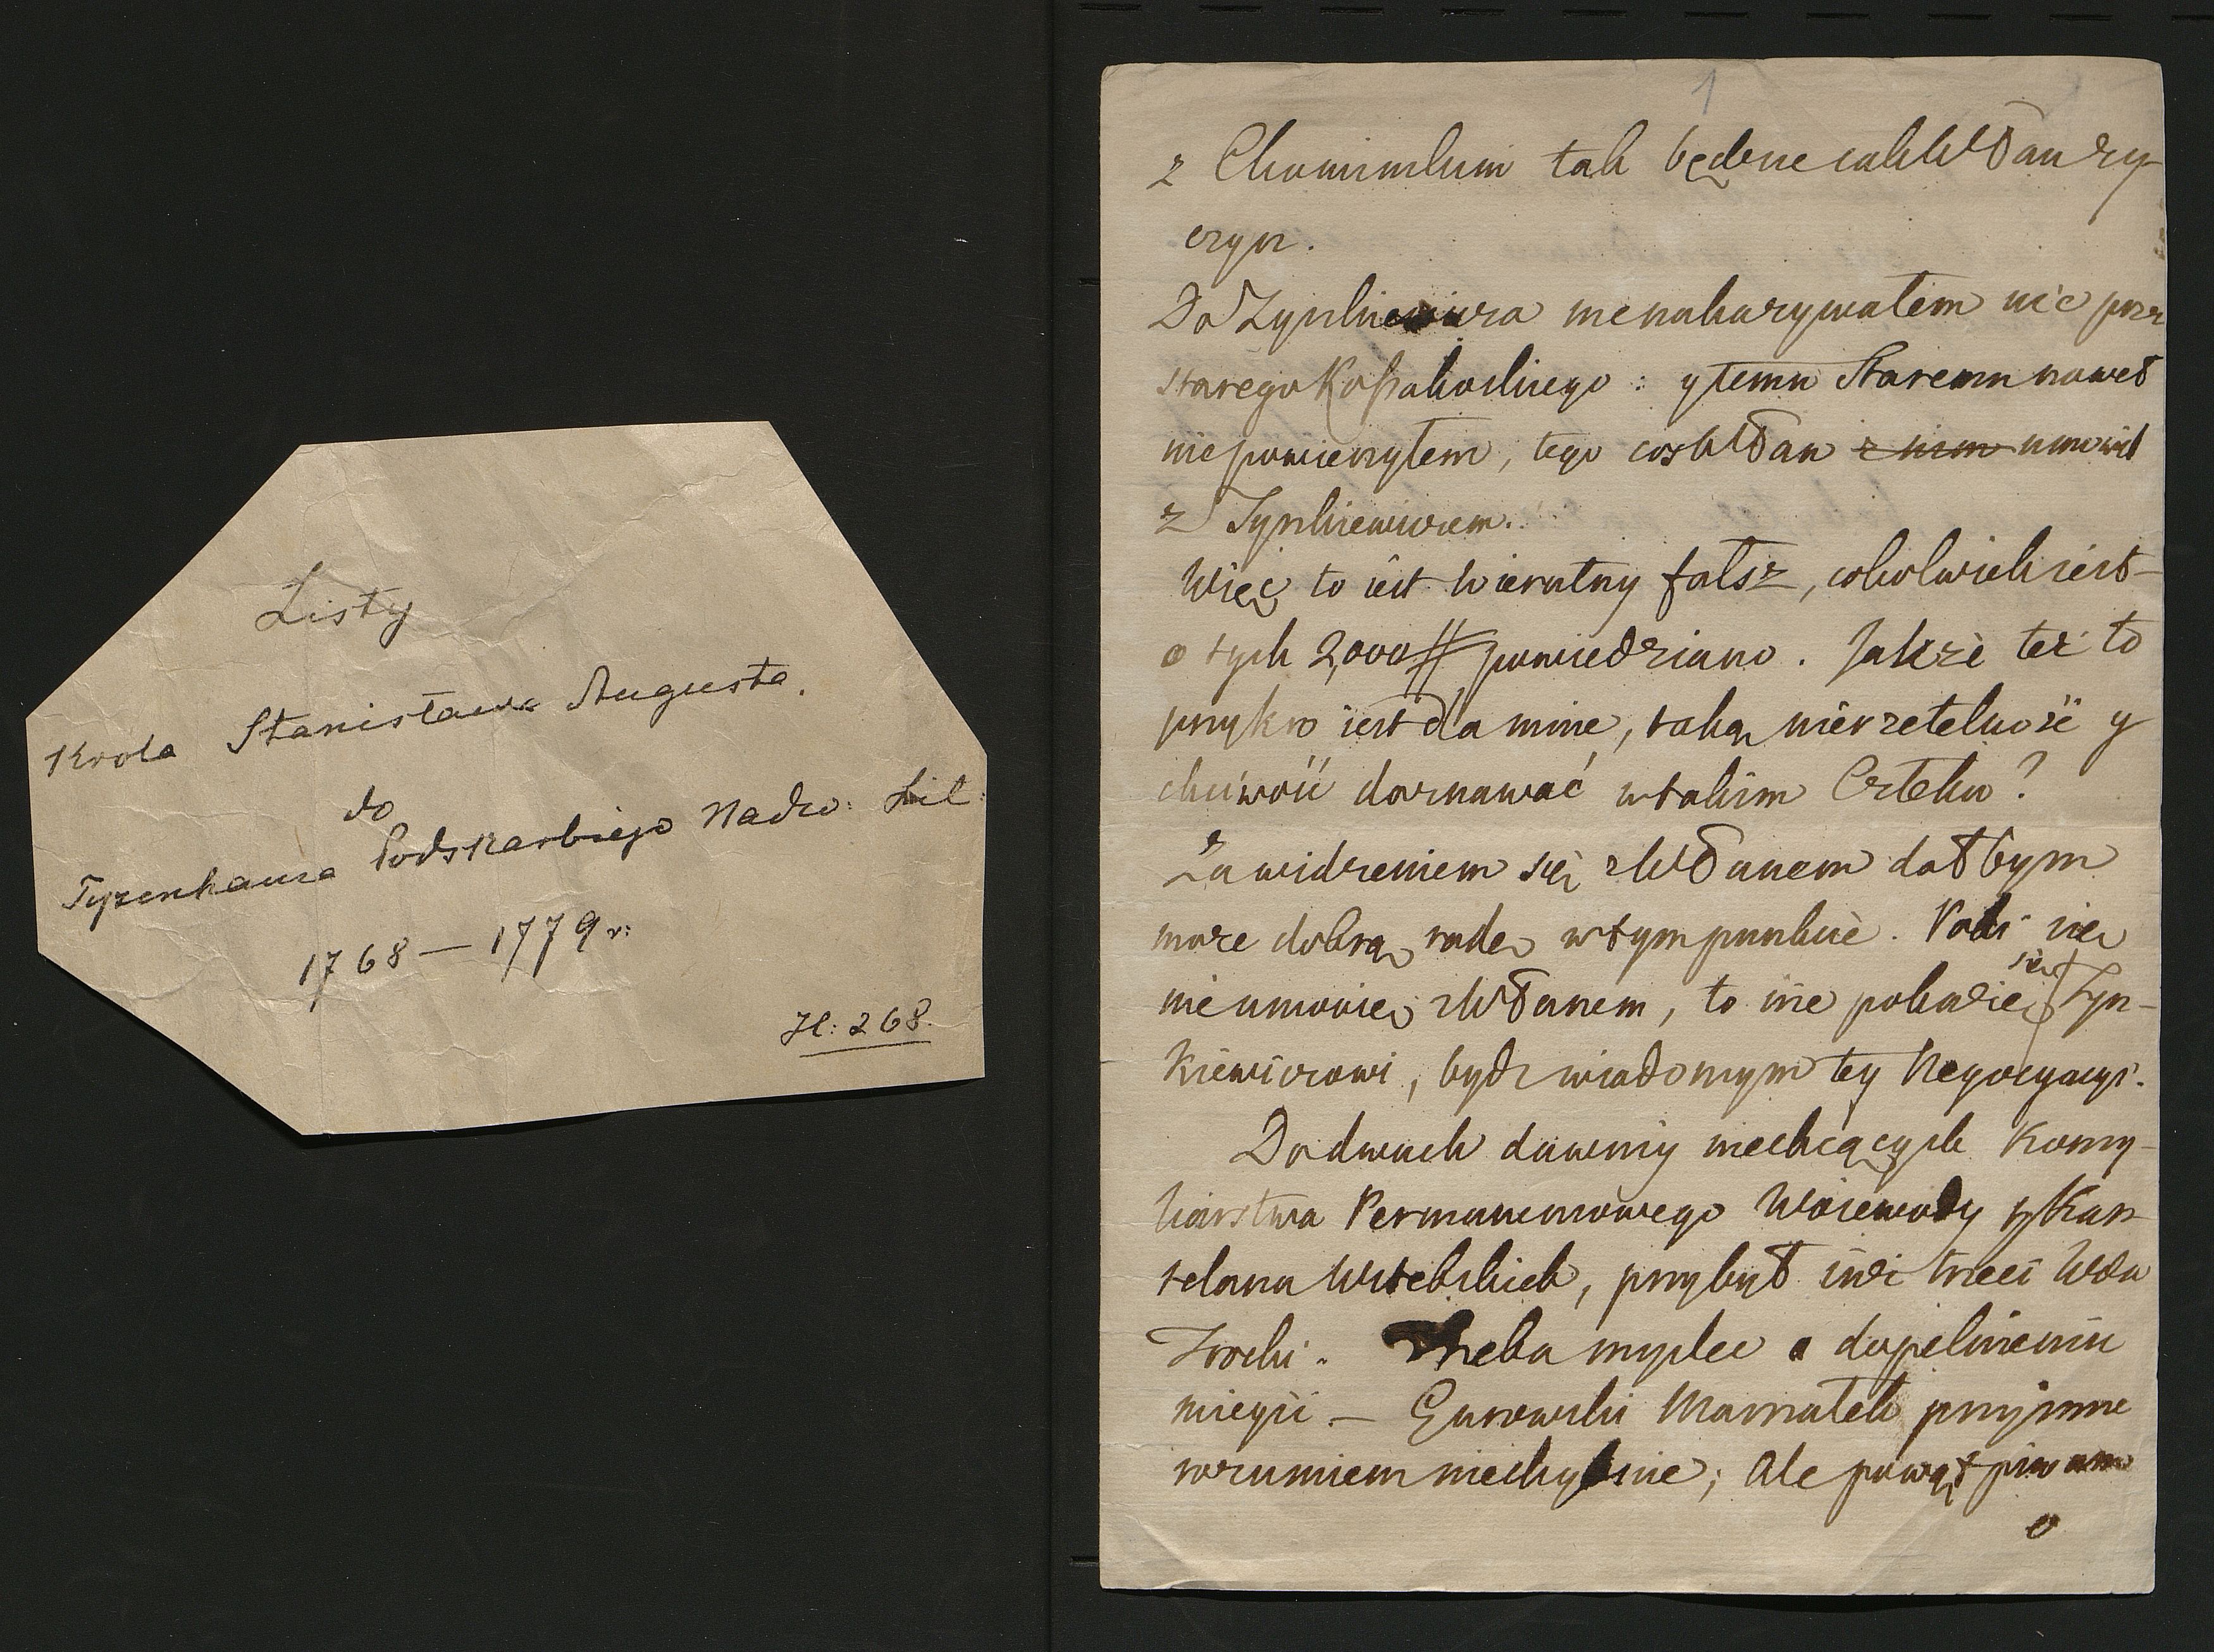 Listy
Króla Stanisława Augusta.
do
Tyzenhauza Podskarbiego Nadw: Lit:
1768 — 1779 r:
Il: 268.
1
z Chominskim tak będzie iak WPan zy-
czysz.
Do Zynkiewicza nie nakazywałem nic prze
starego Kossakoskiego: y temu Staremu nawet
nie powierzyłem, tego coś WPan z nim umowił
z Zynkiewiczem.
Więc to iest wierutny fałsz, cokolwiek iest
o tych 2,000 # powiedziano. Jakże też to
przykro iest dla mnie, taką nierzetelność y
chciwość doznawać w takim Człeku?
Za widzeniem się z WPanem dałbym
może dobrą radę w tym punkcie. Poki się
nie umowię z WPanem, to nie pokażę się Zyn-
kiewiczowi, bydź wiadomym tey Negocyacyi.
Do dwuch dawniy niechcących Komy-
sarstwa Permanentowego Woiewody y Kasz-
telana Witebskich, przybył iuż trzeci Wda
Trocki. Trzeba myslec o dopelnieniu
mieysc. — Gurowski Marszałek przyimie
rozumiem niechybnie; Ale powątpiwam
o